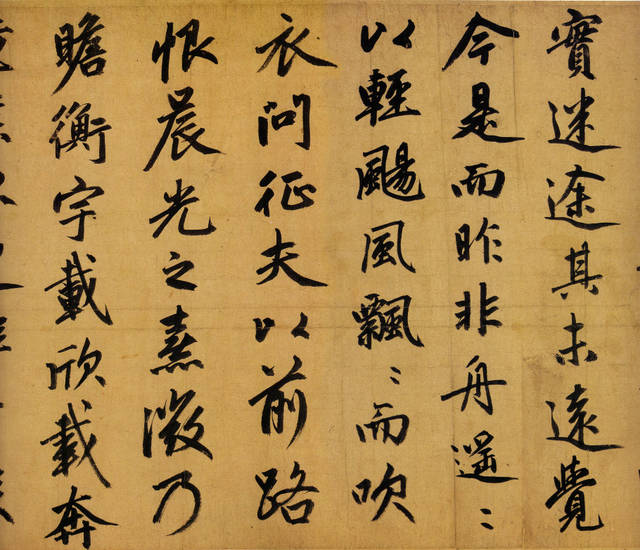 實迷途其未遠覺
今是而昨非舟遙〻
以輕颺風飄〻而吹
衣問征夫以前路
恨晨光之熹微乃
瞻衡宇載欣載奔